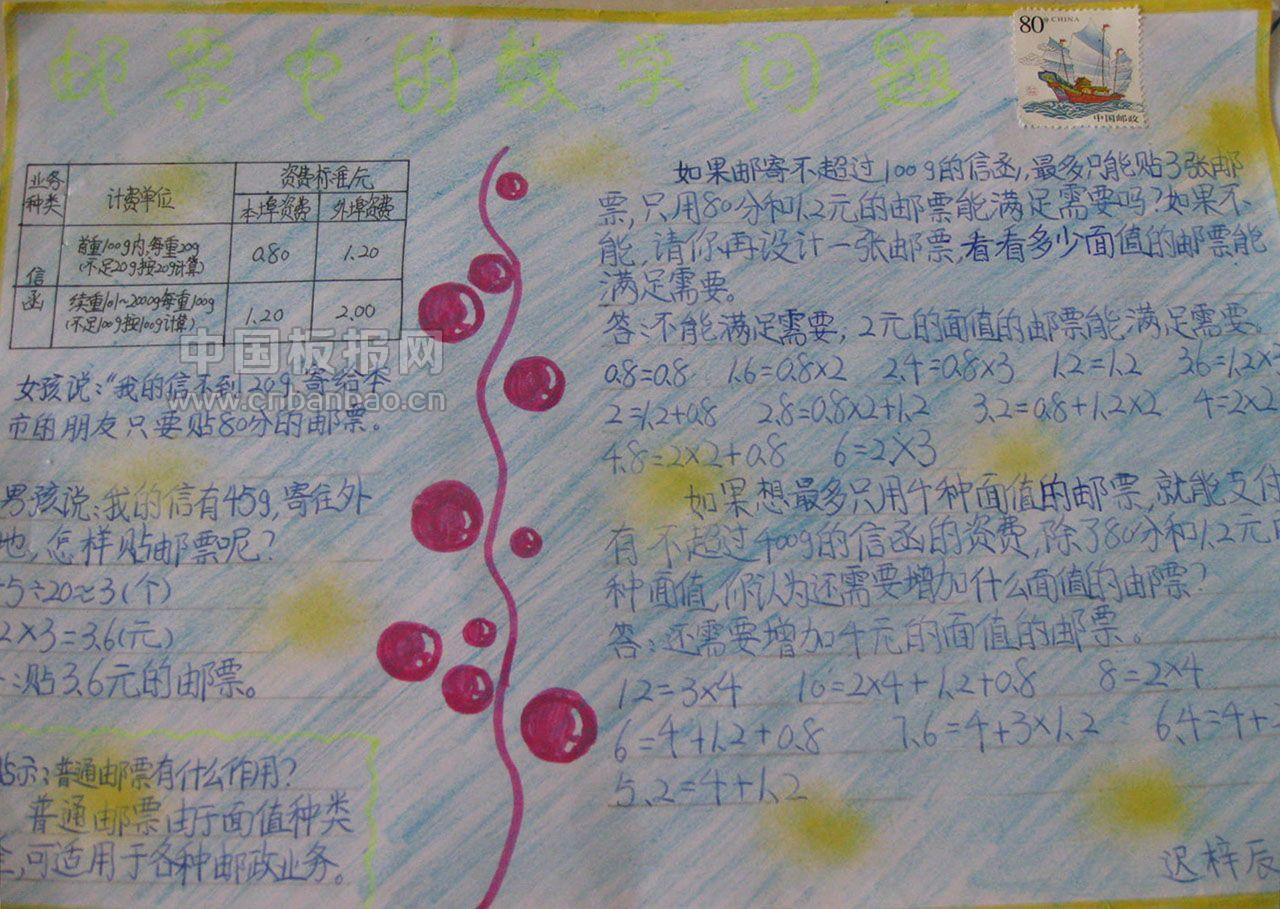 邮票中的数学问题
80分 CHINA
中国邮政
业务种类 计费单位 资费标准/元
本埠资费 外埠资费
信函
首重100g内,每重20g (不足20g按20g计算) 0.80 1.20
续重101~2000g每重100g (不足100g按100g计算) 1.20 2.00
中国板报网
www.cnbanbao.cn
女孩说:“我的信不到20g,寄给本
市的朋友只要贴80分的邮票。
男孩说:我的信有45g,寄往外
地,怎样贴邮票呢?
5÷20≈3(个)
2×3=3.6(元)
:贴3.6元的邮票。
示:普通邮票有什么作用?
普通邮票由于面值种类
全,可适用于各种邮政业务。
如果邮寄不超过100g的信函,最多只能贴3张邮
票,只用80分和1.2元的邮票能满足需要吗?如果不
能,请你再设计一张邮票,看看多少面值的邮票能
满足需要。
答:不能满足需要,2元的面值的邮票能满足需要。
0.8=0.8 1.6=0.8×2 2.4=0.8×3 1.2=1.2 3.6=1.2×
2=1.2+0.8 2.8=0.8×2+1.2 3.2=0.8+1.2×2 4=2×2
4.8=2×2+0.8 6=2×3
如果想最多只用4种面值的邮票,就能支付
有不超过400g的信函的资费,除了80分和1.2元
种面值,你认为还需要增加什么面值的邮票?
答:还需要增加4元的面值的邮票。
12=3×4 10=2×4+1.2+0.8 8=2×4
6=4+1.2+0.8 7.6=4+3×1.2 6.4=4+
5.2=4+1.2
迟梓辰